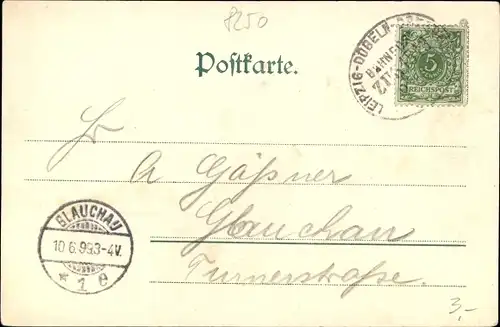 8250
LEIPZIG-DÖBELN-
BAHNPOST
ZUG
5
REICHSPOST
Postkarte.
Hr
A Gäßner
Glauchau
Turnerstraße.
GLAUCHAU
10.6.99.3-4V.
* 1 e
3,-